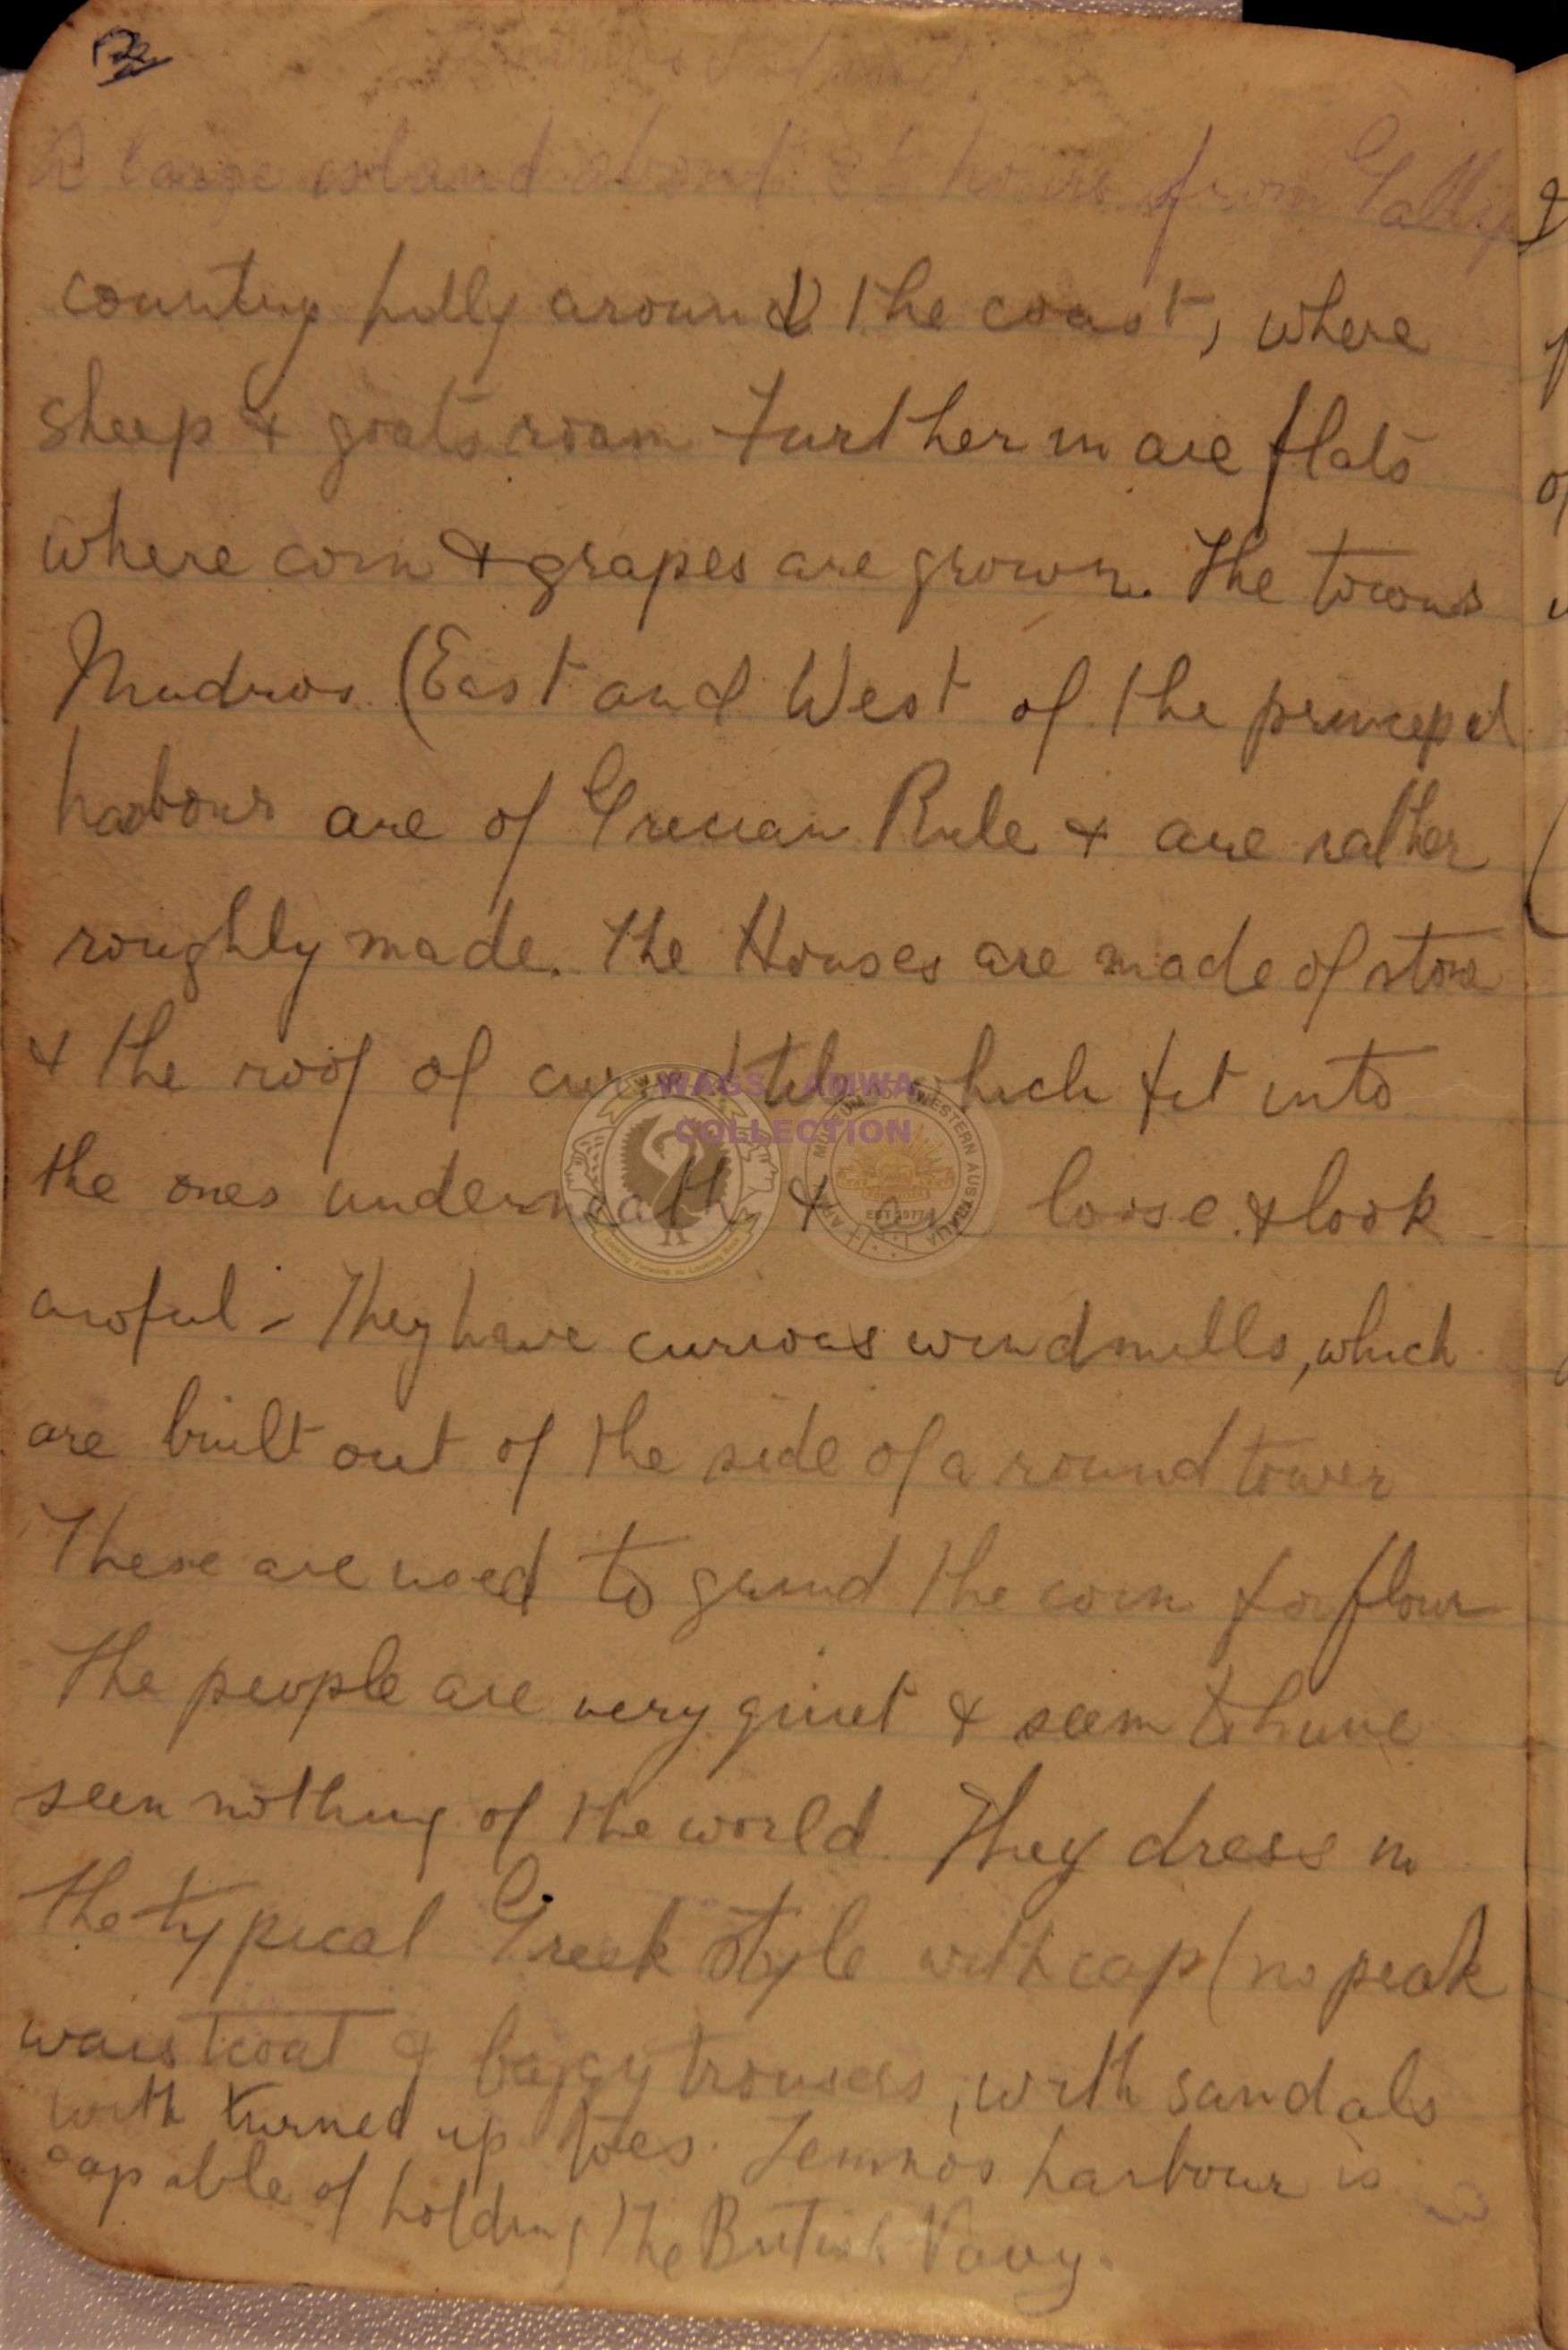 Island
A large island about 3½ hours from Gallip
country hilly around the coast, where
sheep & goats roam Further in are flats
where corn & grapes are grown. The towns
Mudros (East and West of the principal
harbour are of Grecian Rule & are rather
roughly made. The Houses are made of stone
& the roof of which fit into
the ones underneath & loose & look
awful - They have curious windmills, which
are built out of the side of a round tower
These are used to grind the corn for flour
The people are very quiet & seem to have
seen nothing of the world They dress in
the typical Greek style with cap (no peak
waistcoat & baggy trousers, with sandals
with turned up toes. Lemnos harbour is
capable of holding the British Navy.
WAGS AMWA
COLLECTION
MUSEUM OF WESTERN AUSTRALIA
EST 1977